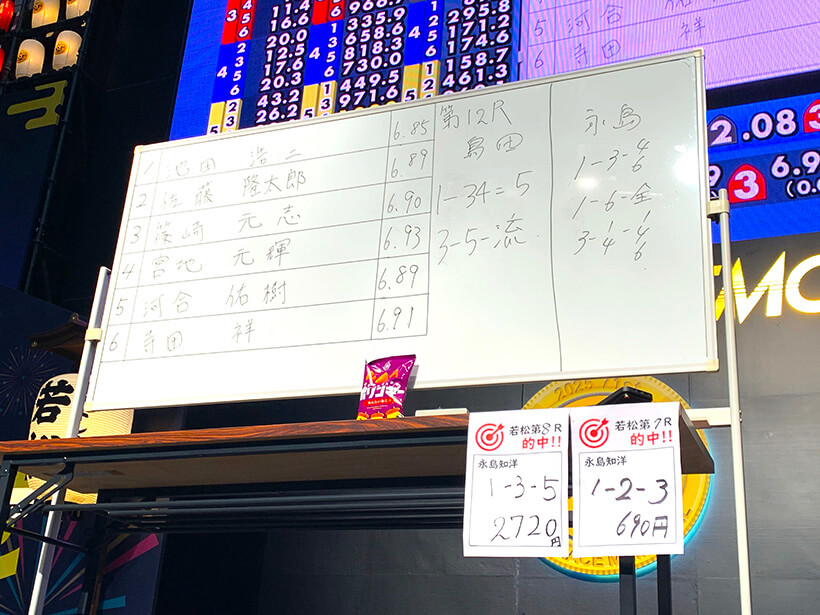 1 池田 浩二 6.85
2 佐藤 隆太郎 6.89
3 篠崎 元志 6.90
4 宮地 元輝 6.93
5 河合 佑樹 6.89
6 寺田 祥 6.91
第12R
島田
1-34=5
3-5-流
永島
1-3-4
6
1-6-全
3-1-1
4 4
6
若松第8R
的中!!
永島知洋
1-3-5
2720円
若松第7R
的中!!
永島知洋
1-2-3
690円
5 河合
6 寺田 祥
11.4
16.6
20.0
12.5
17.6
20.3
43.2
26.2
658.9
658.6
818.3
730.0
449.5
971.6
295.8
171.2
158.7
174.6
461.3
2.08
3
6.9
若
2025